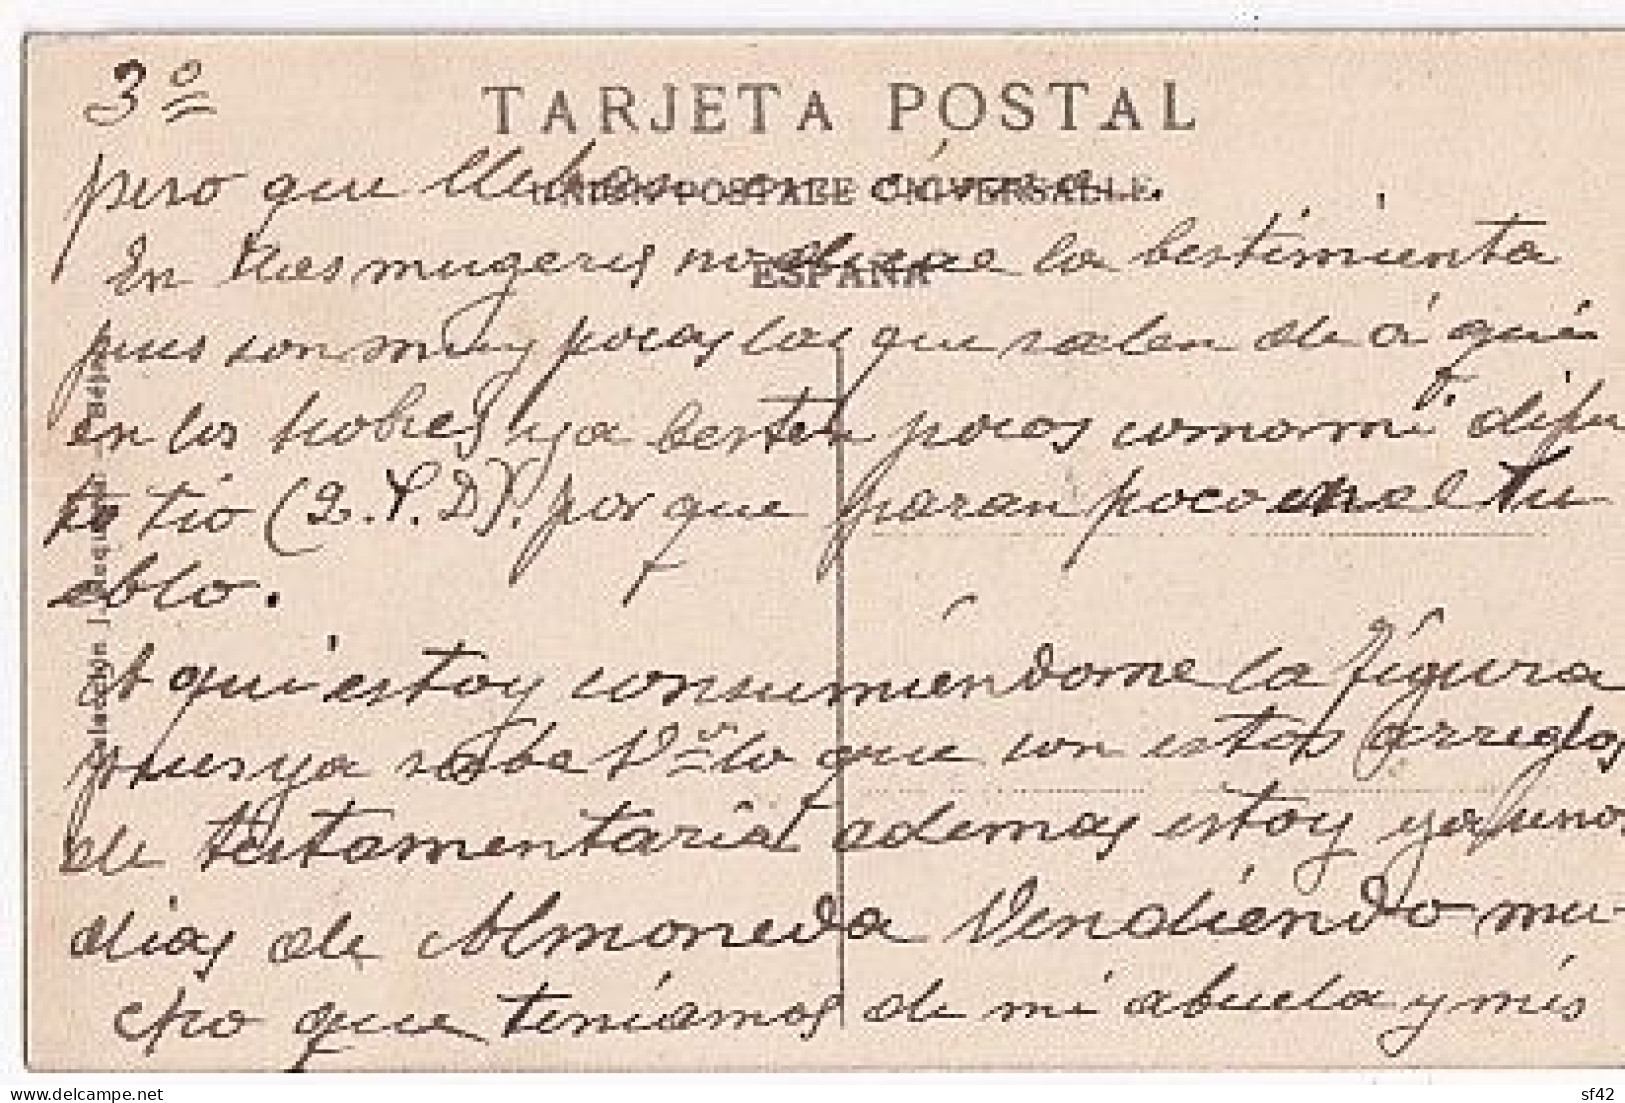 3º
TARJETA POSTAL
UNION POSTALE UNIVERSELLE
ESPAÑA
pero que lleban
En las mugeres no la bestimienta
pues son muy pocas las que salen de á qui
en los hobres ya besten pocos como mi difun
to tio (Q.E.D). por que paran poco en el Pu
eblo.
A qui estoy consumiéndome la figura
pues ya sabe Vª lo que son estos arreglos
de testamentaria ademas estoy ya unos
dias de Almoneda Vendiéndo mu-
cho que teniamos de mi abuela y mis
delcampe.net
sf42